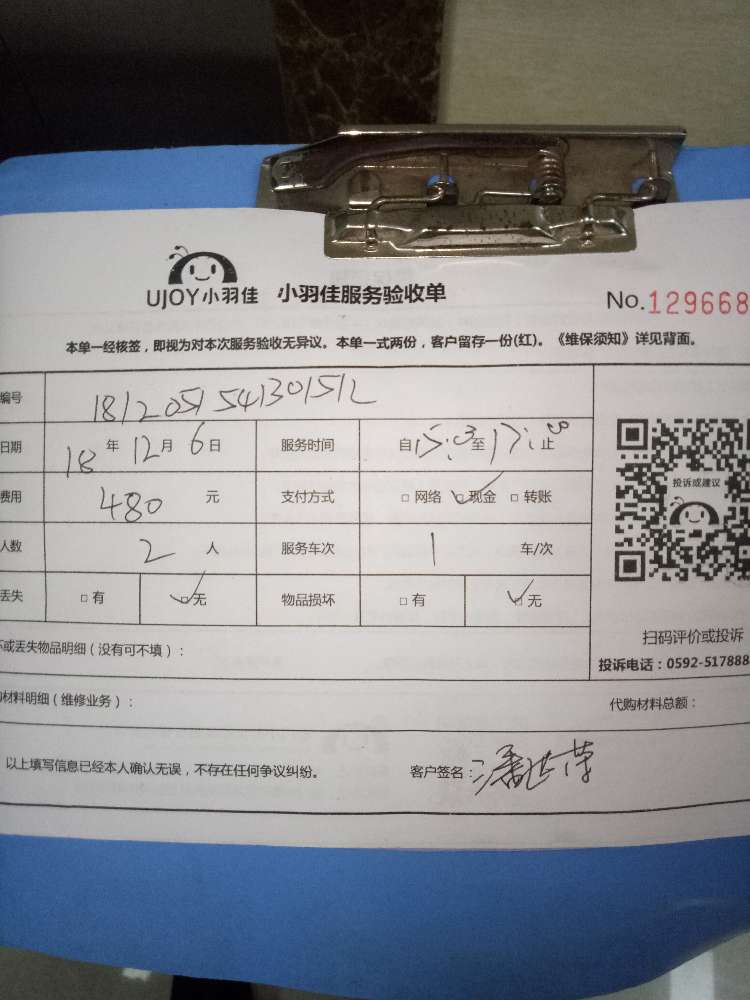 UJOY小羽佳 小羽佳服务验收单 No.129668
本单一经核签，即视为对本次服务验收无异议。本单一式两份，客户留存一份(红)。《维保须知》详见背面。
编号 1812051541301512
日期 18年12月6日 服务时间 自15:03至17: 止
费用 480 元 支付方式 □网络 ☑现金 □转账
人数 2 人 服务车次 1 车/次
丢失 □有 ☑无 物品损坏 □有 ☑无
投诉或建议
扫码评价或投诉
投诉电话：0592-517888
坏或丢失物品明细（没有可不填）：
材料明细（维修业务）： 代购材料总额：
以上填写信息已经本人确认无误，不存在任何争议纠纷。 客户签名：潘